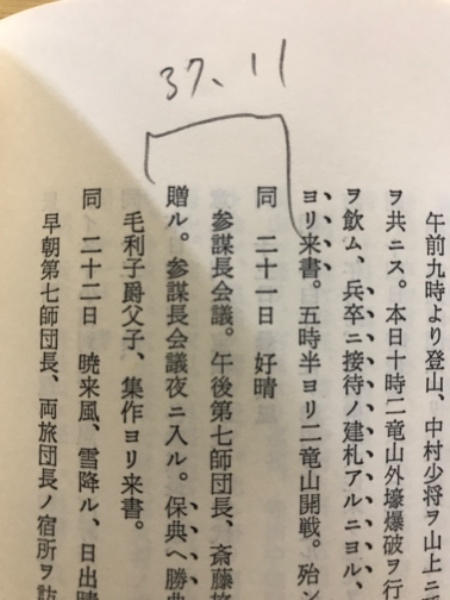 37、11
午前九時より登山、中村少将ヲ山上ニ
ヲ共ニス。本日十時二竜山外壕爆破ヲ行
ヲ飲ム、兵卒ニ接待ノ建札アルニヨル、
ヨリ来書。五時半ヨリ二竜山開戦。殆ン
同 二十一日 好晴
参謀長会議。午後第七師団長、斎藤
贈ル。参謀長会議夜ニ入ル。保典へ勝典
毛利子爵父子、集作ヨリ来書。
同 二十二日 暁来風、雪降ル、日出晴
早朝第七師団長、両旅団長ノ宿所ヲ訪